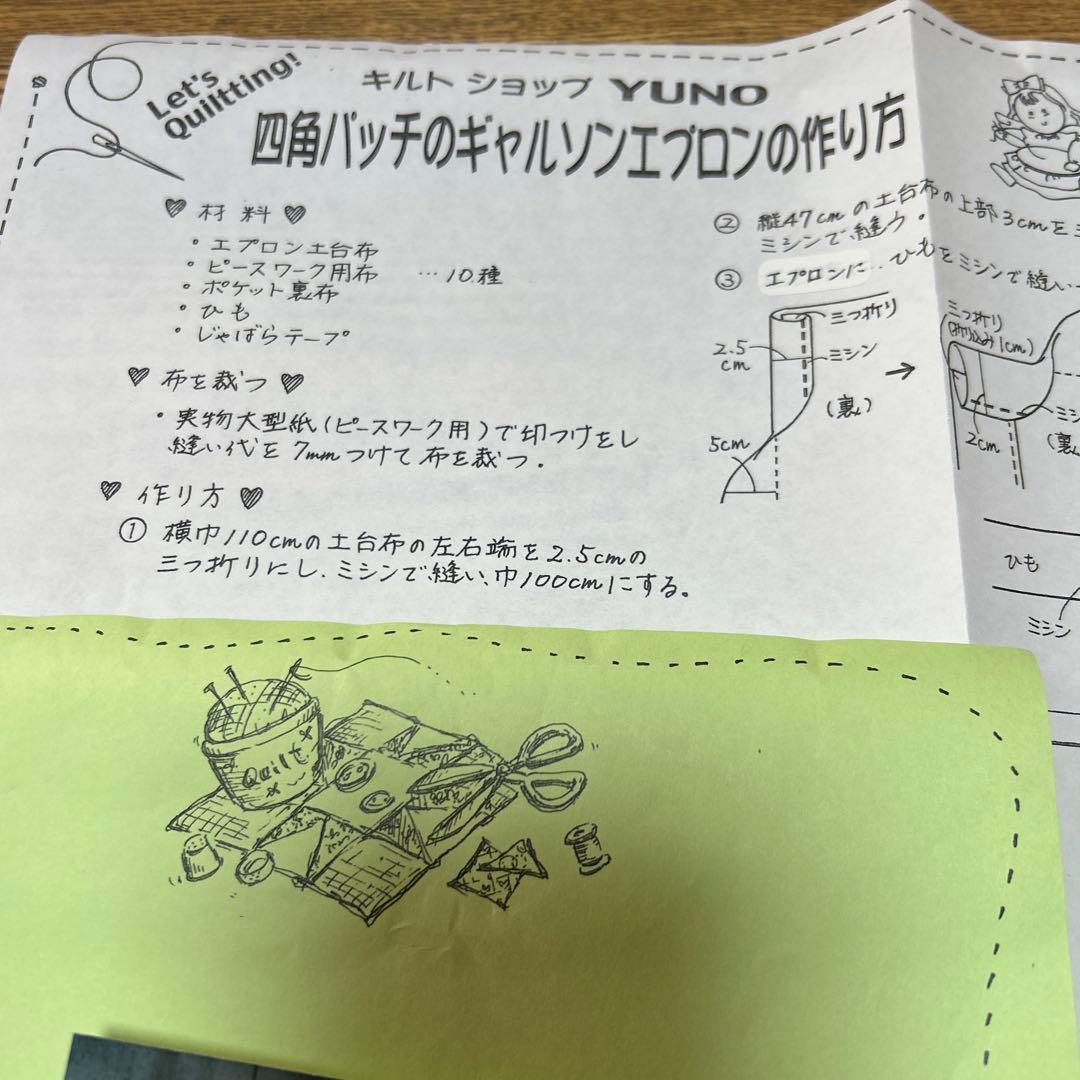 Let's
Quiltting!
キルト ショップ YUNO
四角パッチのギャルソンエプロンの作り方
♥ 材料 ♥
・エプロン土台布
・ピースワーク用布 …10種
・ポケット裏布
・ひも
・じゃばらテープ
♥ 布を裁つ ♥
・実物大型紙(ピースワーク用)で印つけをし
縫い代を7mmつけて布を裁つ.
♥ 作り方 ♥
① 横巾110cmの土台布の左右端を2.5cmの
三つ折りにし、ミシンで縫い、巾100cmにする。
② 縦47cmの土台布の上部3cmを
ミシンで縫う・
③ エプロンに‥ひもをミシンで縫い
三つ折り
2.5
cm
ミシン
(裏)
5cm
→
三つ折り
(折り込み1cm)
2cm
ミシ
(裏
ひも
ミシン
Quilt